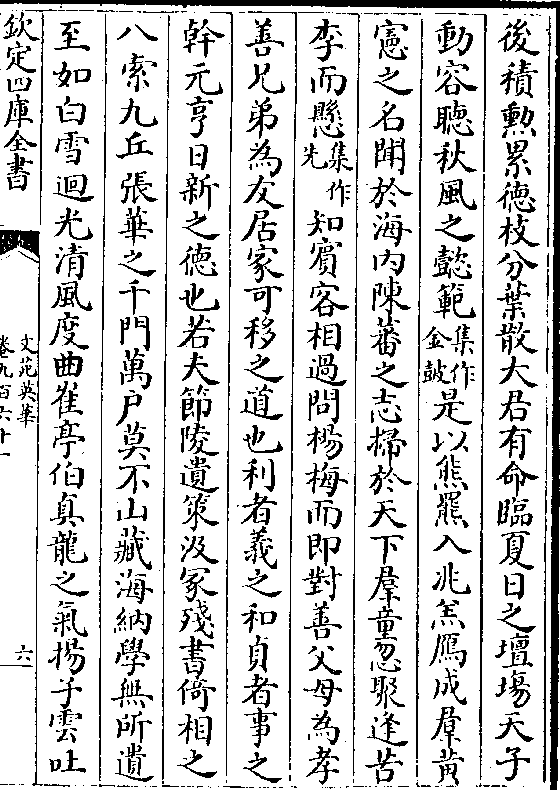 後積勲累德枝分葉散大君有命臨夏日之壇場天子
動容聽秋風之懿範集作金鼓是以熊羆入兆羔鴈成羣黄
憲之名聞於海内陳蕃之志掃於天下羣童忽聚逢苦
李而懸集作先知賓客相過問楊梅而即對善父母為孝
善兄弟為友居家可移之道也利者義之和貞者事之
幹元亨日新之德也若夫節陵遺策汲冢殘書倚相之
八索九丘張華之千門萬户莫不山藏海納學無所遺
至如白雪迴光清風度曲崔亭伯真龍之氣揚子雲吐
欽定四庫全書
文苑英華
卷九百六十一
六